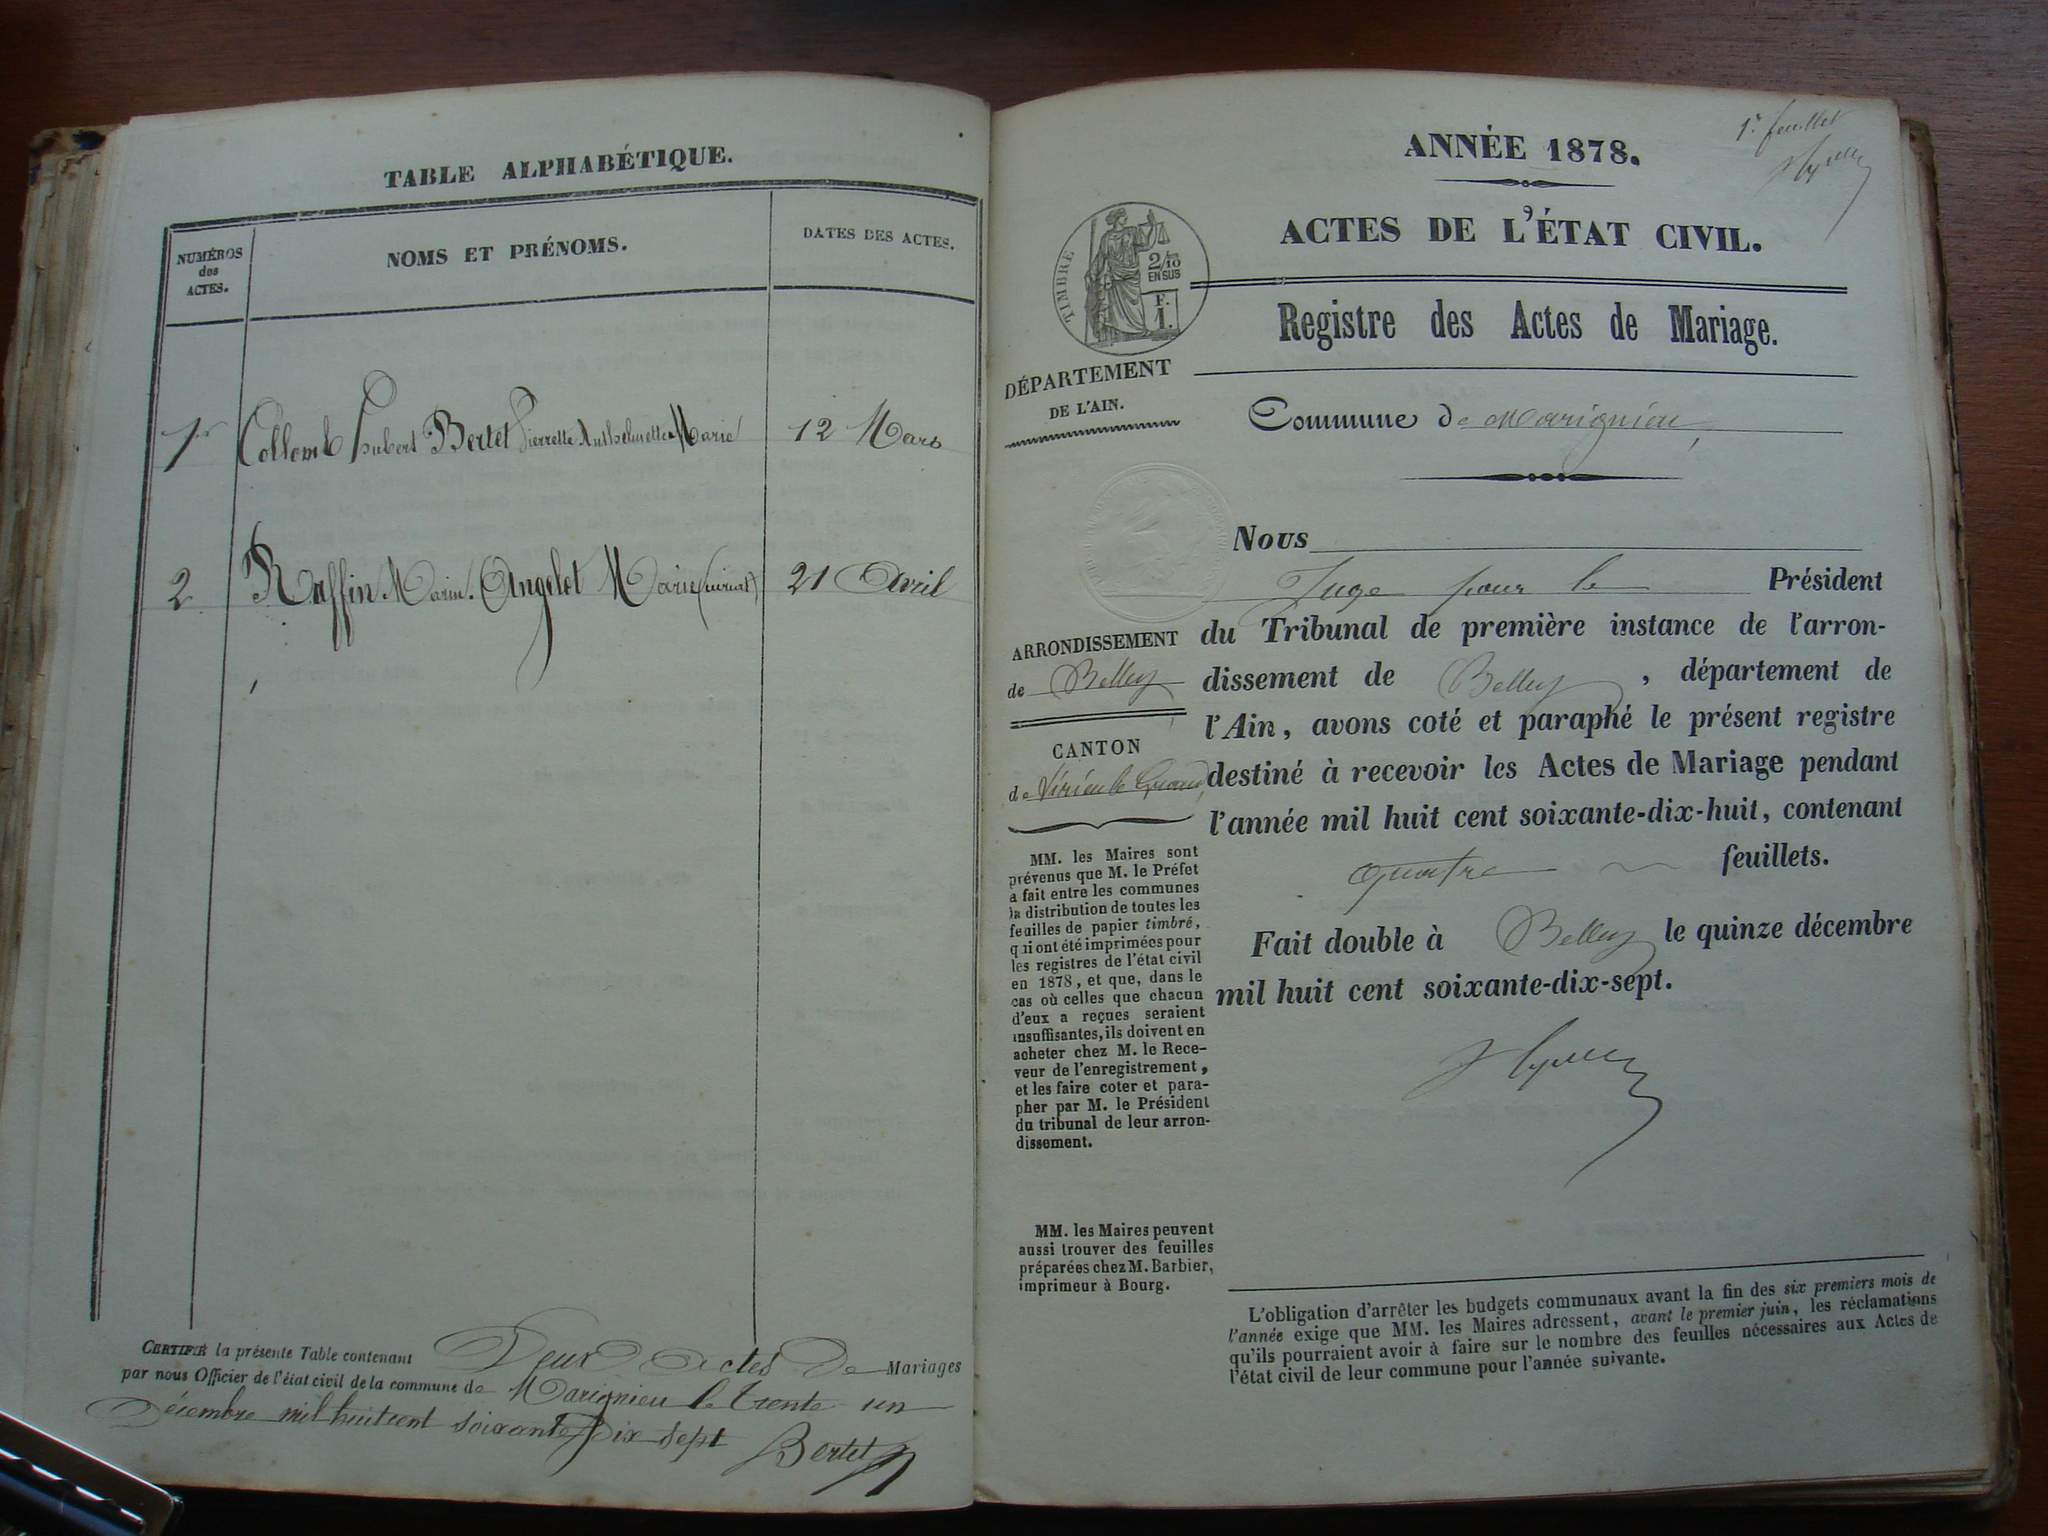 TABLE ALPHABÉTIQUE.
NUMÉROS
des
ACTES.
NOMS ET PRÉNOMS.
DATES DES ACTES.
1 Collomb hubert Bertet Pierrette Anthelmette Marie 12 Mars
2 Raffin Marin. Angelot Marie 21 Avril
CERTIFIÉ la présente Table contenant Deux actes de Mariages
par nous Officier de l'état civil de la commune de Marignieu le trente un
Décembre mil huit cent soixante Dix sept Bertet
1r feuillet
ANNÉE 1878.
ACTES DE L'ÉTAT CIVIL.
Registre des Actes de Mariage.
TIMBRE
2/10
EN SUS
F.
1.
DÉPARTEMENT
DE L'AIN.
Commune de Marignieu
ARRONDISSEMENT
de Belley
CANTON
de Virieu le Grand
MM. les Maires sont
prévenus que M. le Préfet
a fait entre les communes
la distribution de toutes les
feuilles de papier timbré,
qui ont été imprimées pour
les registres de l'état civil
en 1878, et que, dans le
cas où celles que chacun
d'eux a reçues seraient
insuffisantes, ils doivent en
acheter chez M. le Rece-
veur de l'enregistrement,
et les faire coter et para-
pher par M. le Président
du tribunal de leur arron-
dissement.
MM. les Maires peuvent
aussi trouver des feuilles
préparées chez M. Barbier,
imprimeur à Bourg.
Nous
Juge pour le Président
du Tribunal de première instance de l'arron-
dissement de Belley, département de
l'Ain, avons coté et paraphé le présent registre
destiné à recevoir les Actes de Mariage pendant
l'année mil huit cent soixante-dix-huit, contenant
quatre feuillets.
Fait double à Belley le quinze décembre
mil huit cent soixante-dix-sept.
L'obligation d'arrêter les budgets communaux avant la fin des six premiers mois de
l'année exige que MM. les Maires adressent, avant le premier juin, les réclamations
qu'ils pourraient avoir à faire sur le nombre des feuilles nécessaires aux Actes de
l'état civil de leur commune pour l'année suivante.